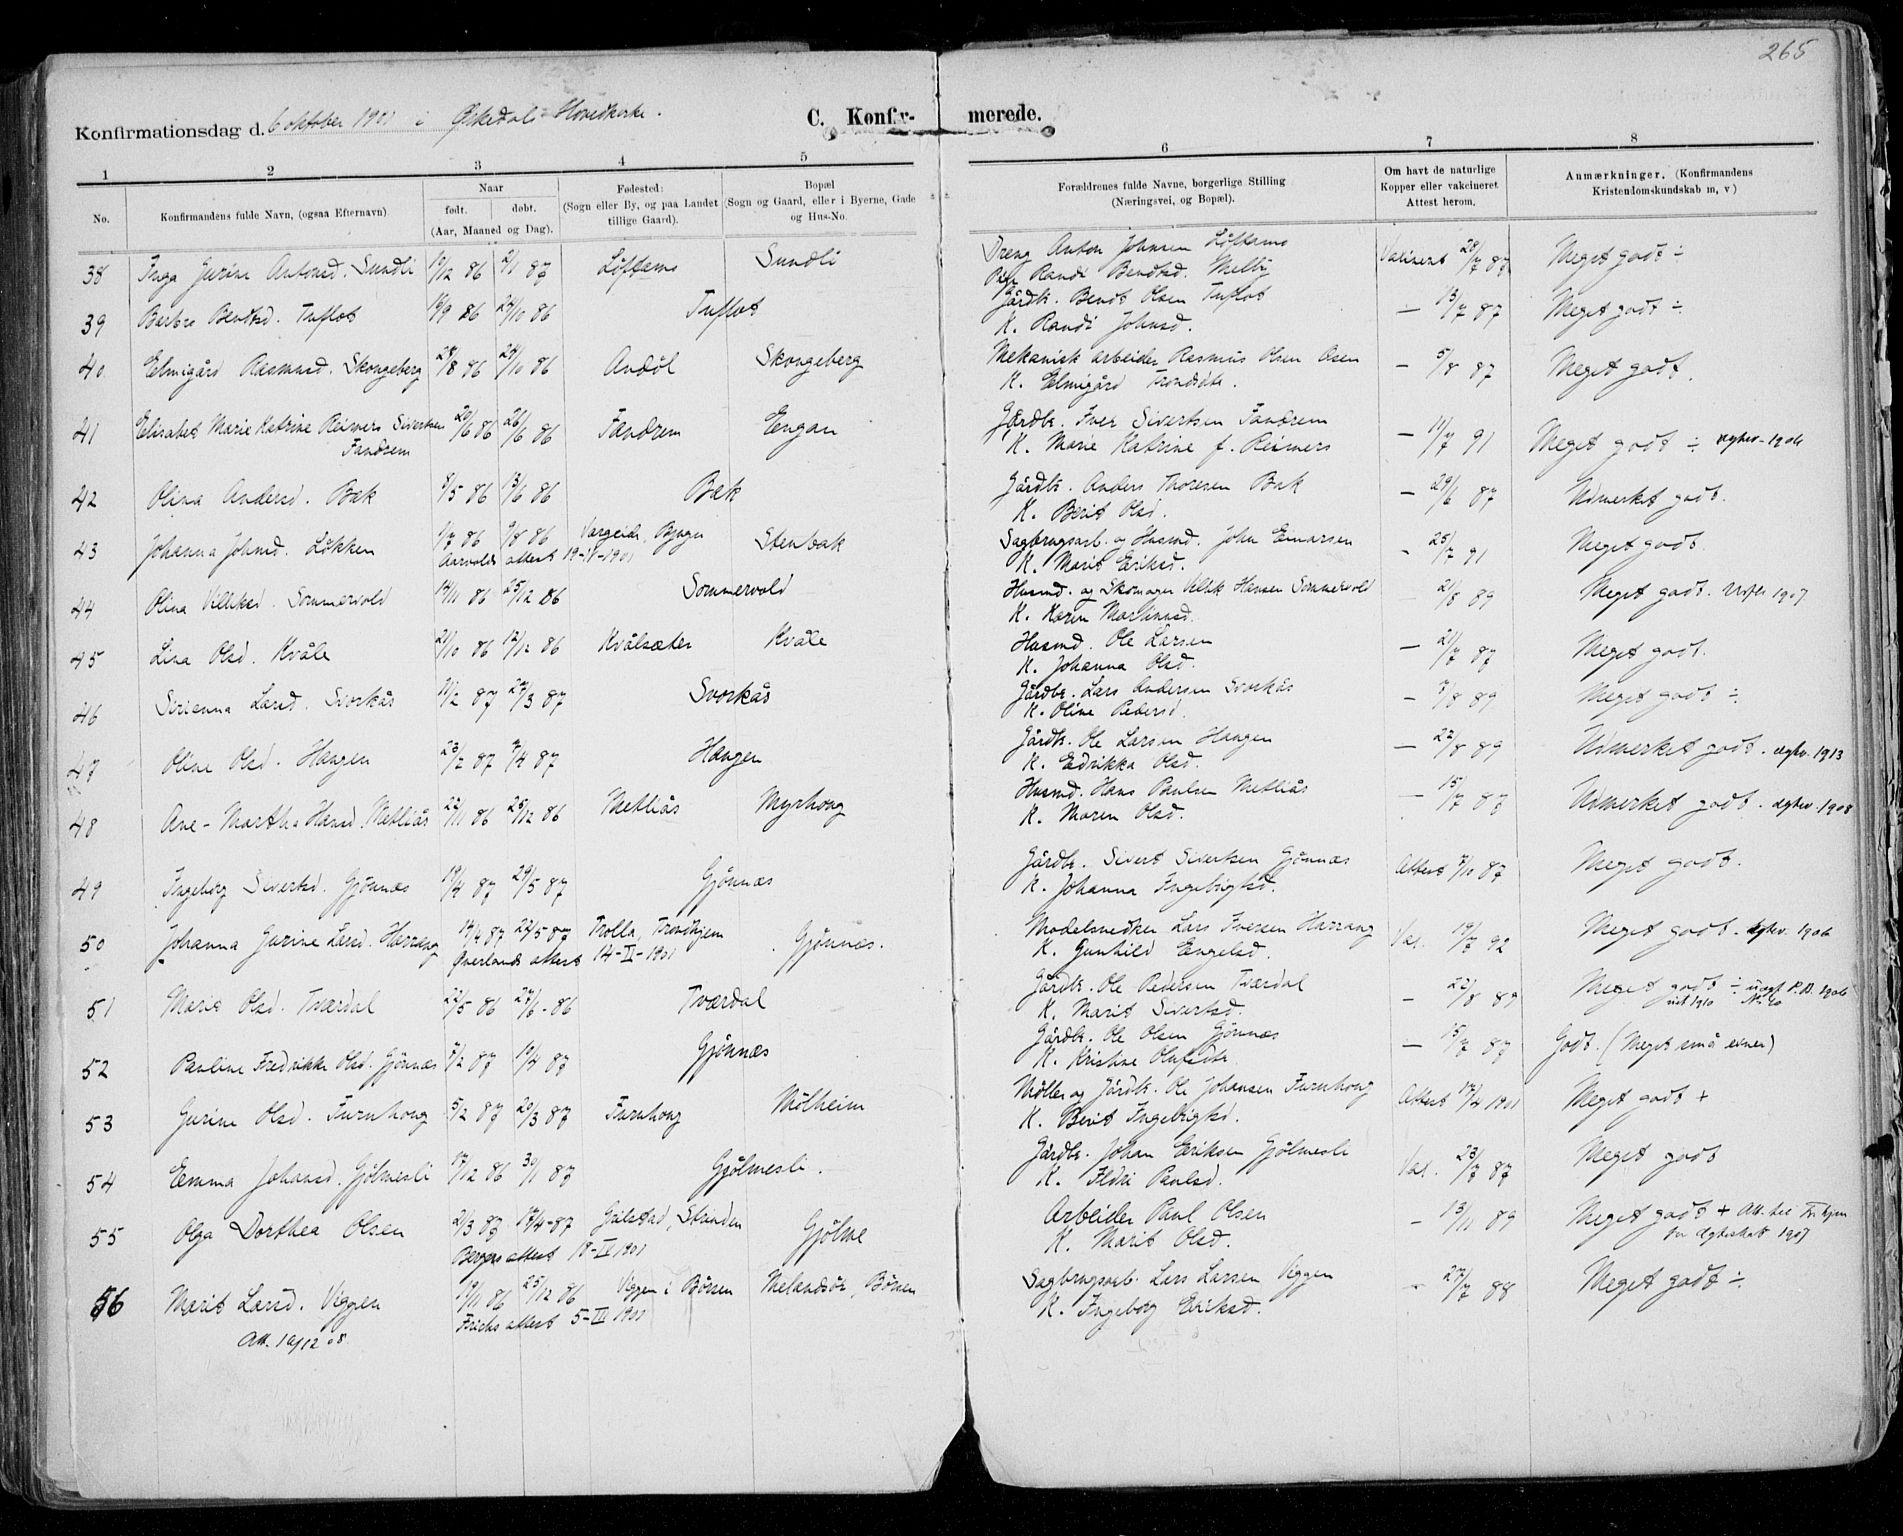 265
Konfirmationsdag d. 6 oktober 1901 i Ørkedals Hovedkirke. C. Konfir- merede.
1 2 3 4 5 6 7 8
No. Konfirmandens fulde Navn, (ogsaa Efternavn) Naar født. døbt. (Aar, Maaned og Dag). Fødested: (Sogn eller By, og paa Landet tillige Gaard). Bopæl (Sogn og Gaard, eller i Byerne, Gade og Hus-No. Forældrenes fulde Navne, borgerlige Stilling (Næringsvei, og Bopæl). Om havt de naturlige Kopper eller vakcineret Attest herom. Anmærkninger. (Konfirmandens Kristendomskundskab m, v)
38 Inga Jurine Antonsd. Sundli 10/12 86 2/1 87 Løftamo Sundli Dreng Anton Johnsen Løftamo Pige Randi Bendtsd. Melby 28/7 87 Meget godt ÷
39 Berbro Bendtsd. Tuflot 14/9 86 24/10 86 Tuflot Gårdb. Bendt Olsen Tuflot K. Randi Johnsd. — 13/7 87 Meget godt ÷
40 Elmigård Rasmusd. Skongeberg 28/8 86 24/10 86 Andøl Skongeberg Mekanisk arbeider Rasmus Olsen Osen K. Elmigård Trondsdtr. — 5/8 87 Meget godt.
41 Elisabet Marie Katrine Reimers Sivertsen Fandrem 20/6 86 26/6 86 Fandrem Engan Gårdb. Iver Sivertsen Fandrem K. Marie Katrine f. Reimers — 11/7 91 Meget godt ÷ 1906
42 Olina Andersd. Bak 8/5 86 13/6 86 Bak Gårdb. Anders Thoresen Bak K. Berit Olsd. — 29/6 87 Udmerket godt.
43 Johanna Johnsd. Løkken 1/7 86 9/8 86 Stenbak Sagbrugsarb. og Husmd. John Einarsen K. Marit Eriksd. — 25/7 91 Meget godt.
Aarvolds attest 19-IV-1901
44 Olina Villiksd. Sommervold 14/11 86 25/12 86 Sommervold Husmd. og Skomager Villik Hansen Sommervold K. Karen Martinusd. — 21/8 89 Meget godt. 1907
45 Lina Olsd. Kvåle 21/10 86 12/12 86 Kvålsæter Kvåle Husmd. Ole Larsen K. Johanna Olsd. — 21/7 87 Meget godt.
46 Sirianna Larsd. Svorkås 11/2 87 27/3 87 Svorkås Gårdb. Lars Andersen Svorkås K. Oline Pedersd. — 7/8 89 Meget godt ÷
47 Oline Olsd. Haugen 23/2 87 7/4 87 Haugen Gårdb. Ole Larsen Haugen K. Edrikka Olsd. — 22/8 89 Udmerket godt. 1913
48 Ane-Martha Hansd. Metliås 22/11 86 25/12 86 Metliås Myrhoug Husmd. Hans Paulsen Metliås K. Maren Olsd. — 15/7 87 Udmerket godt. 1908
49 Ingeborg Sivertsd. Gjønnæs 19/4 87 29/5 87 Gjønnæs Gårdb. Sivert Sivertsen Gjønnæs K. Johanna Ingebrigtsd. Attest 7/10 87 Meget godt.
50 Johanna Gurine Larsd. Harrang 14/4 87 22/5 87 Trolla, Trondhjem Gjønnæs. Modelsnedker Lars Iversen Harrang K. Gunhild Engelsd. Vac. 19/7 92 Meget godt. 1906
Øverlands attest 14-II-1901
51 Marie Olsd. Tværdal 22/5 86 27/6-86 Tværdal Gårdb. Ole Pedersen Tværdal K. Marit Sivertsd. — 22/8 89 Meget godt ÷ P.B. 1906
52 Pauline Fredrikke Olsd. Gjønnæs 7/2 87 10/4 87 Gjønnæs Gårdb. Ole Olsen Gjønnæs K. Kristine Olufsdtr. — 15/7 87 Godt. (Meget små evner)
53 Gurine Olsd. Furuhoug 5/2 87 20/3 87 Furuhoug Mølheim Møller og Gårdb. Ole Johansen Furuhoug K. Berit Ingebrigtsd. Attest 17/4 1901 Meget godt +
54 Emma Johansd. Gjølmesli 17/12 86 30/1 87 Gjølmesli. Gårdb. Johan Eriksen Gjølmesli K. Ildri Paulsd. Vac. 23/7 87 Meget godt
55 Olga Dorthea Olsen 2/3 87 17/4-87 Gjølme Arbeider Paul Olsen K. Marit Olsd. — 13/11 89 Meget godt +
Bergs attest 18-IV 1901
56 Marit Larsd. Viggen 19/11 86 25/12 86 Viggen i Børsen Melandsør, Børsen Sagbrugsarb. Lars Larsen Viggen K. Ingeborg Eriksd. — 27/7 88 Meget godt ÷
Att. 10/12 08. Frichs attest 5-III 1901